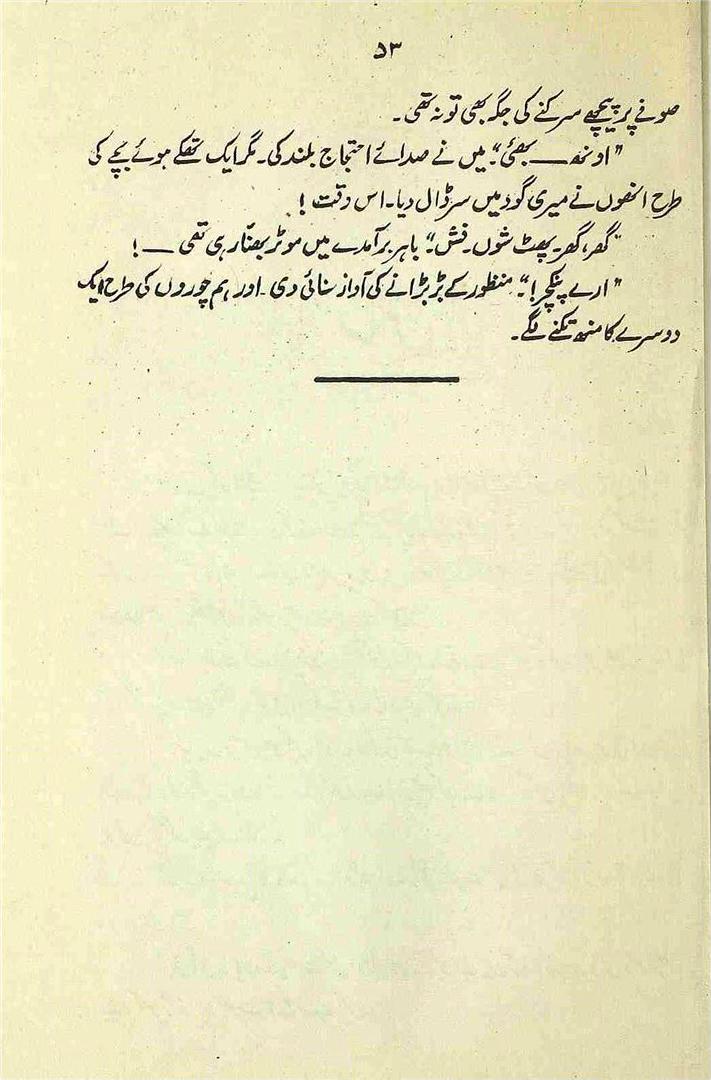 ۵۳
صوفے پر پیچھے سرکنے کی جگہ بھی تو نہ تھی۔
"اونھ — بھئی"۔ میں نے صدائے احتجاج بلند کی۔ مگر ایک تھکے ہوئے بچے کی
طرح انھوں نے میری گود میں سر ڈال دیا۔ اس وقت!
"گھر، گھر۔ پھٹ شوں۔ فش۔" باہر برآمدے میں موٹر بھنّا رہی تھی — !
"ارے پنکچر!"۔ منظور کے بڑبڑانے کی آواز سنائی دی۔ اور ہم چوروں کی طرح ایک
دوسرے کا منھ تکنے لگے۔